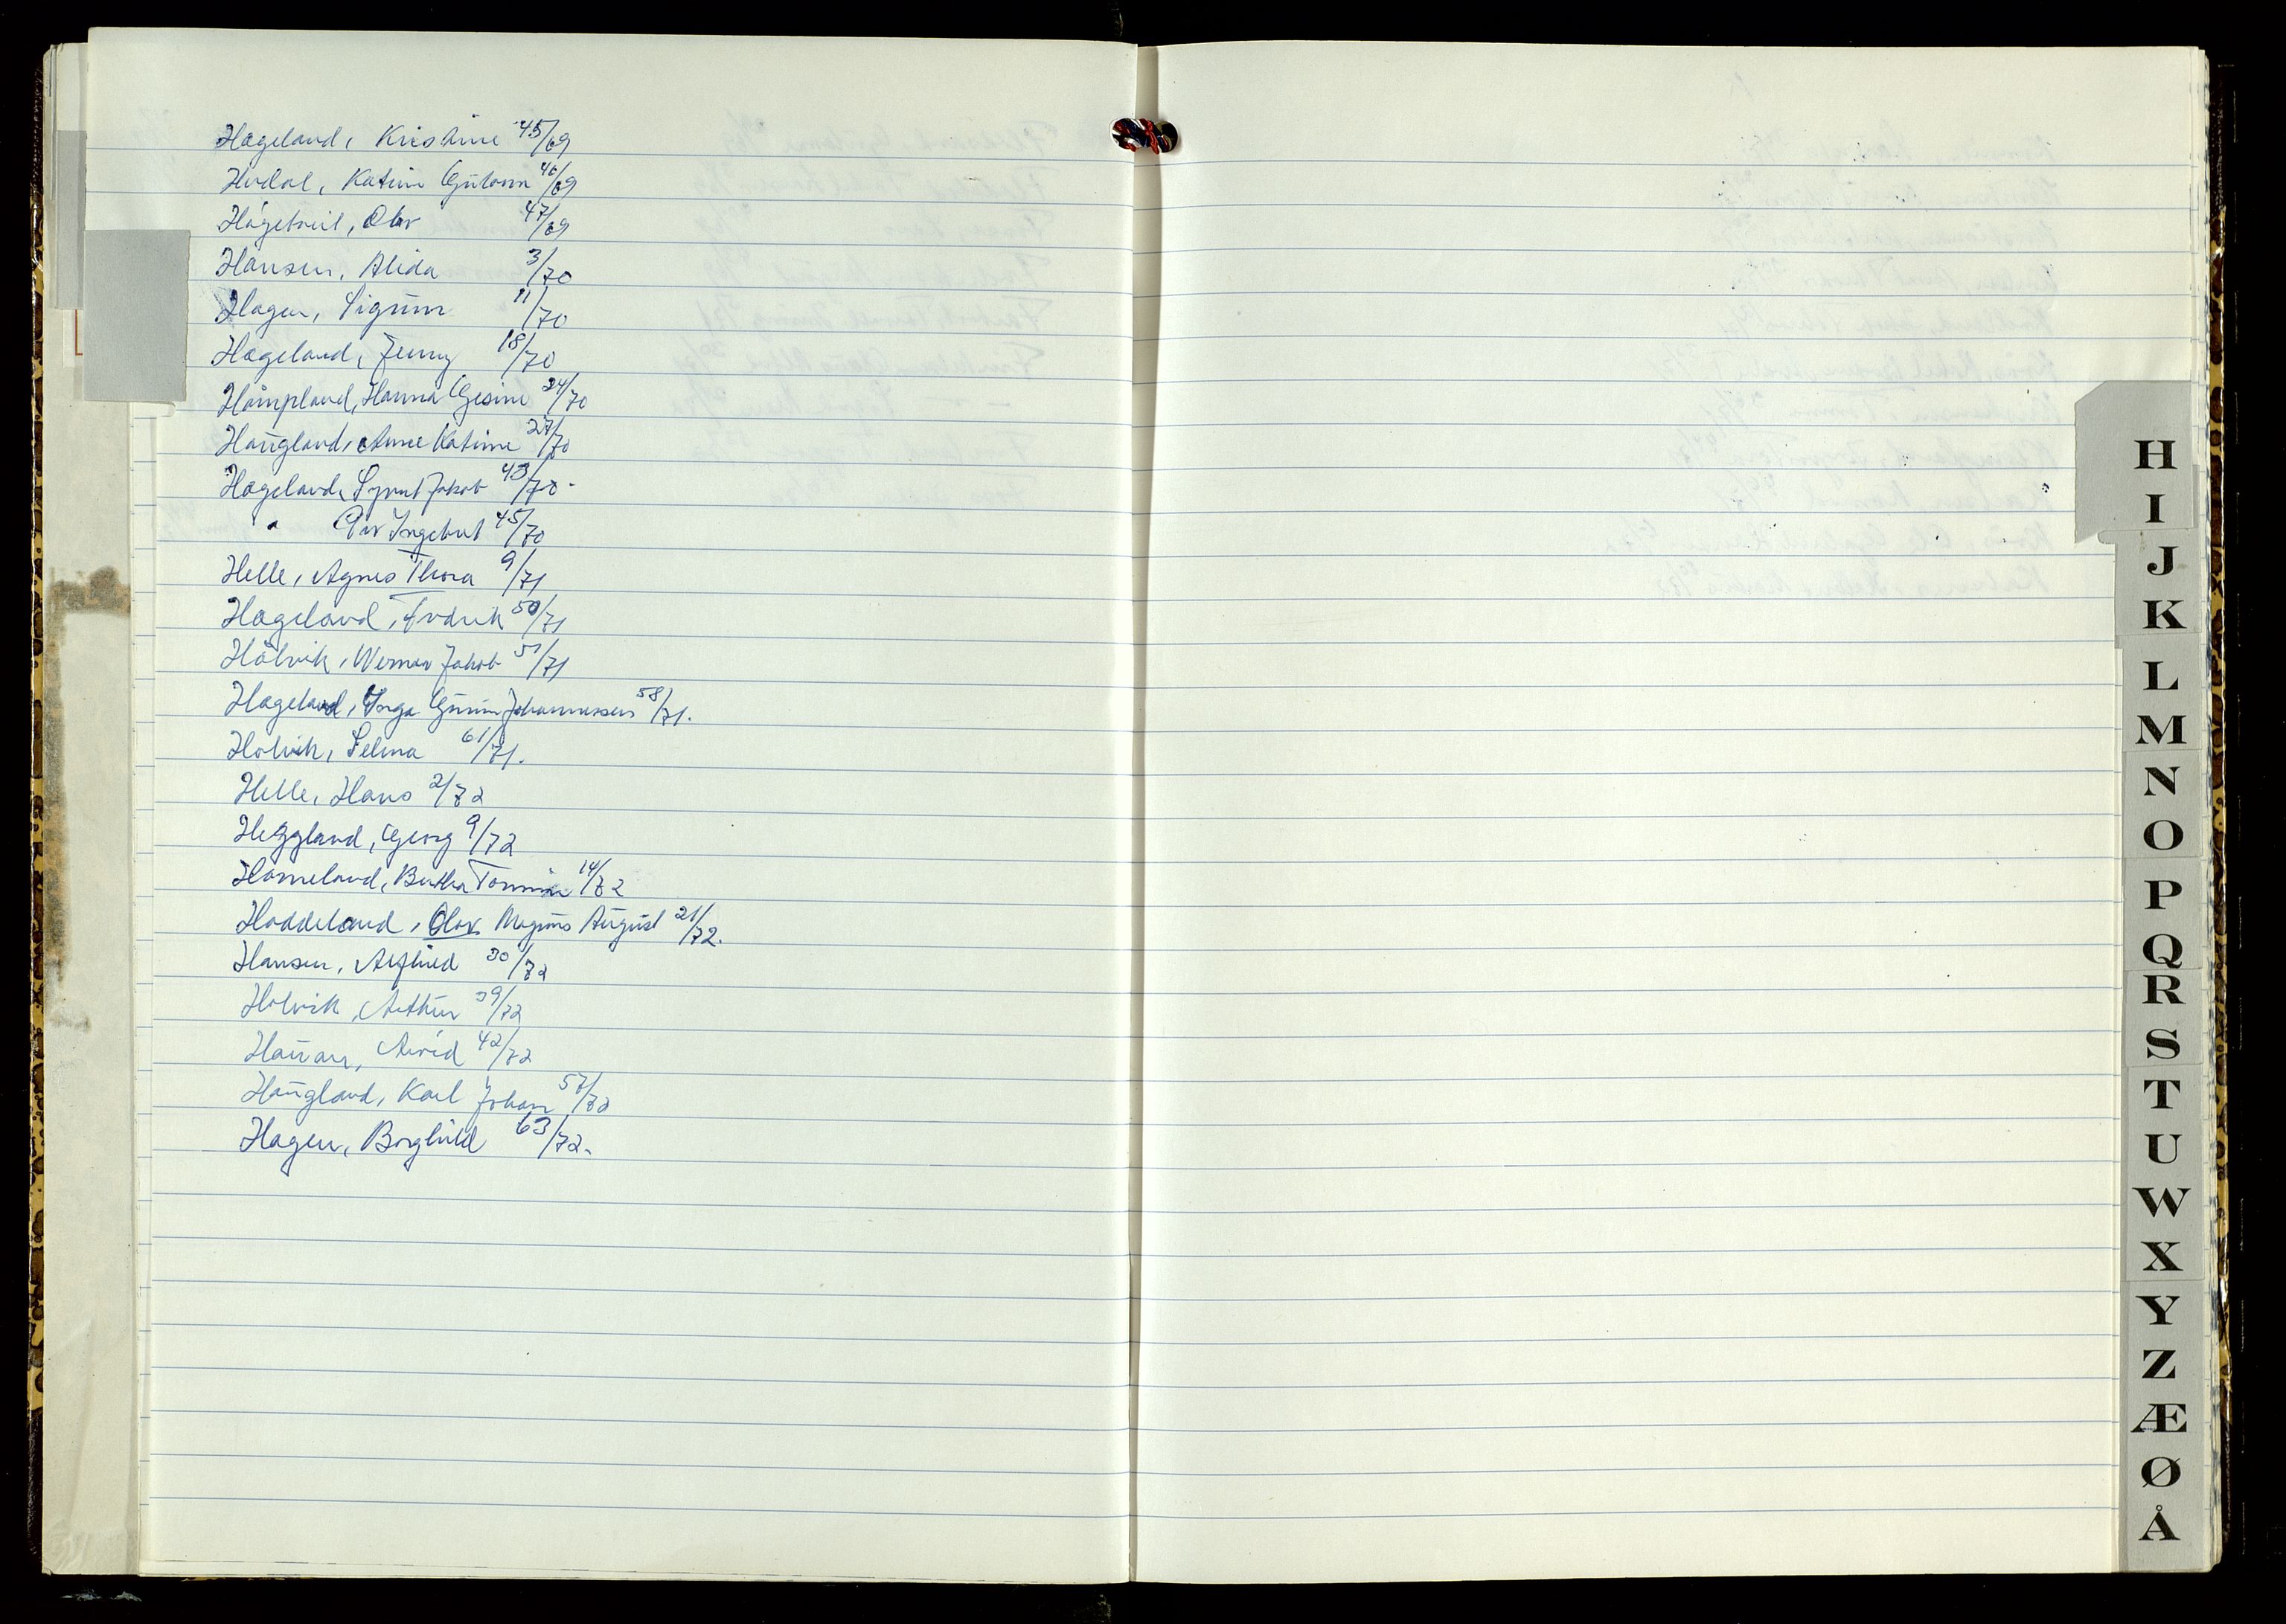 Hægeland, Kristine 45/69
Hodal, Katrine Gurine 46/69
Hågetveit, Olav 47/69
Hansen, Alida 3/70
Hagen, Sigrun 11/70
Hægeland, Jenny 18/70
Håmpland, Hanna Gesine 24/70
Haugland, Anne Katrine 27/70
Hægeland, Syvert Jakob 43/70
" Per Ingebret 45/70
Helle, Agnes Thora 9/71
Hægeland, Fredrik 50/71
Hålvik, Werner Jakob 51/71
Hægeland, Inga Gurine Johannessen 58/71.
Holvik, Selma 61/71.
Helle, Hans 2/72
Heggland, Georg 9/72
Homeland, Bertha Tomine 14/72
Hoddeland, Olav Magnus August 21/72.
Hansen, Alfhild 30/72
Holvik, Arthur 39/72
Hauan, Arvid 42/72
Haugland, Karl Johan 57/72
Hagen, Borghild 63/72.
H
I
J
K
L
M
N
O
P
Q
R
S
T
U
W
X
Y
Z
Æ
Ø
Å